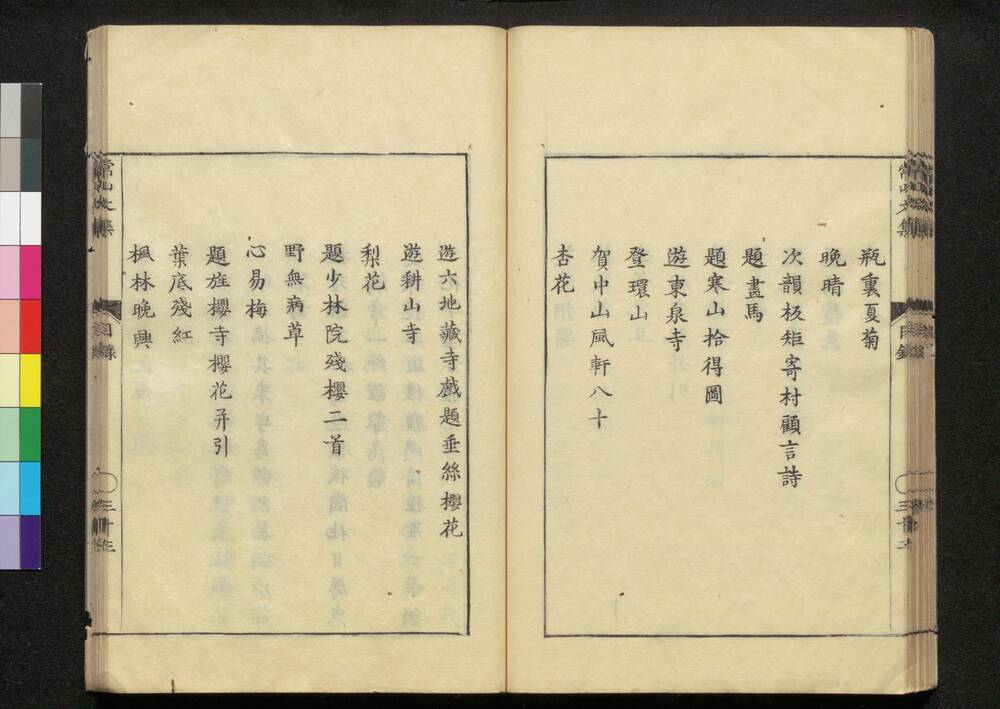 瓶裏夏菊
晚晴
次韻板矩寄村顧言詩
題畫馬
題寒山拾得圖
遊東泉寺
登環山
賀中山風軒八十
杏花
遊六地藏寺戲題垂絲櫻花
遊耕山寺
梨花
題少林院殘櫻二首
野無病草
心易梅
題旌櫻寺櫻花幷引
葉底殘紅
楓林晚興
常山文集
目錄
三十三